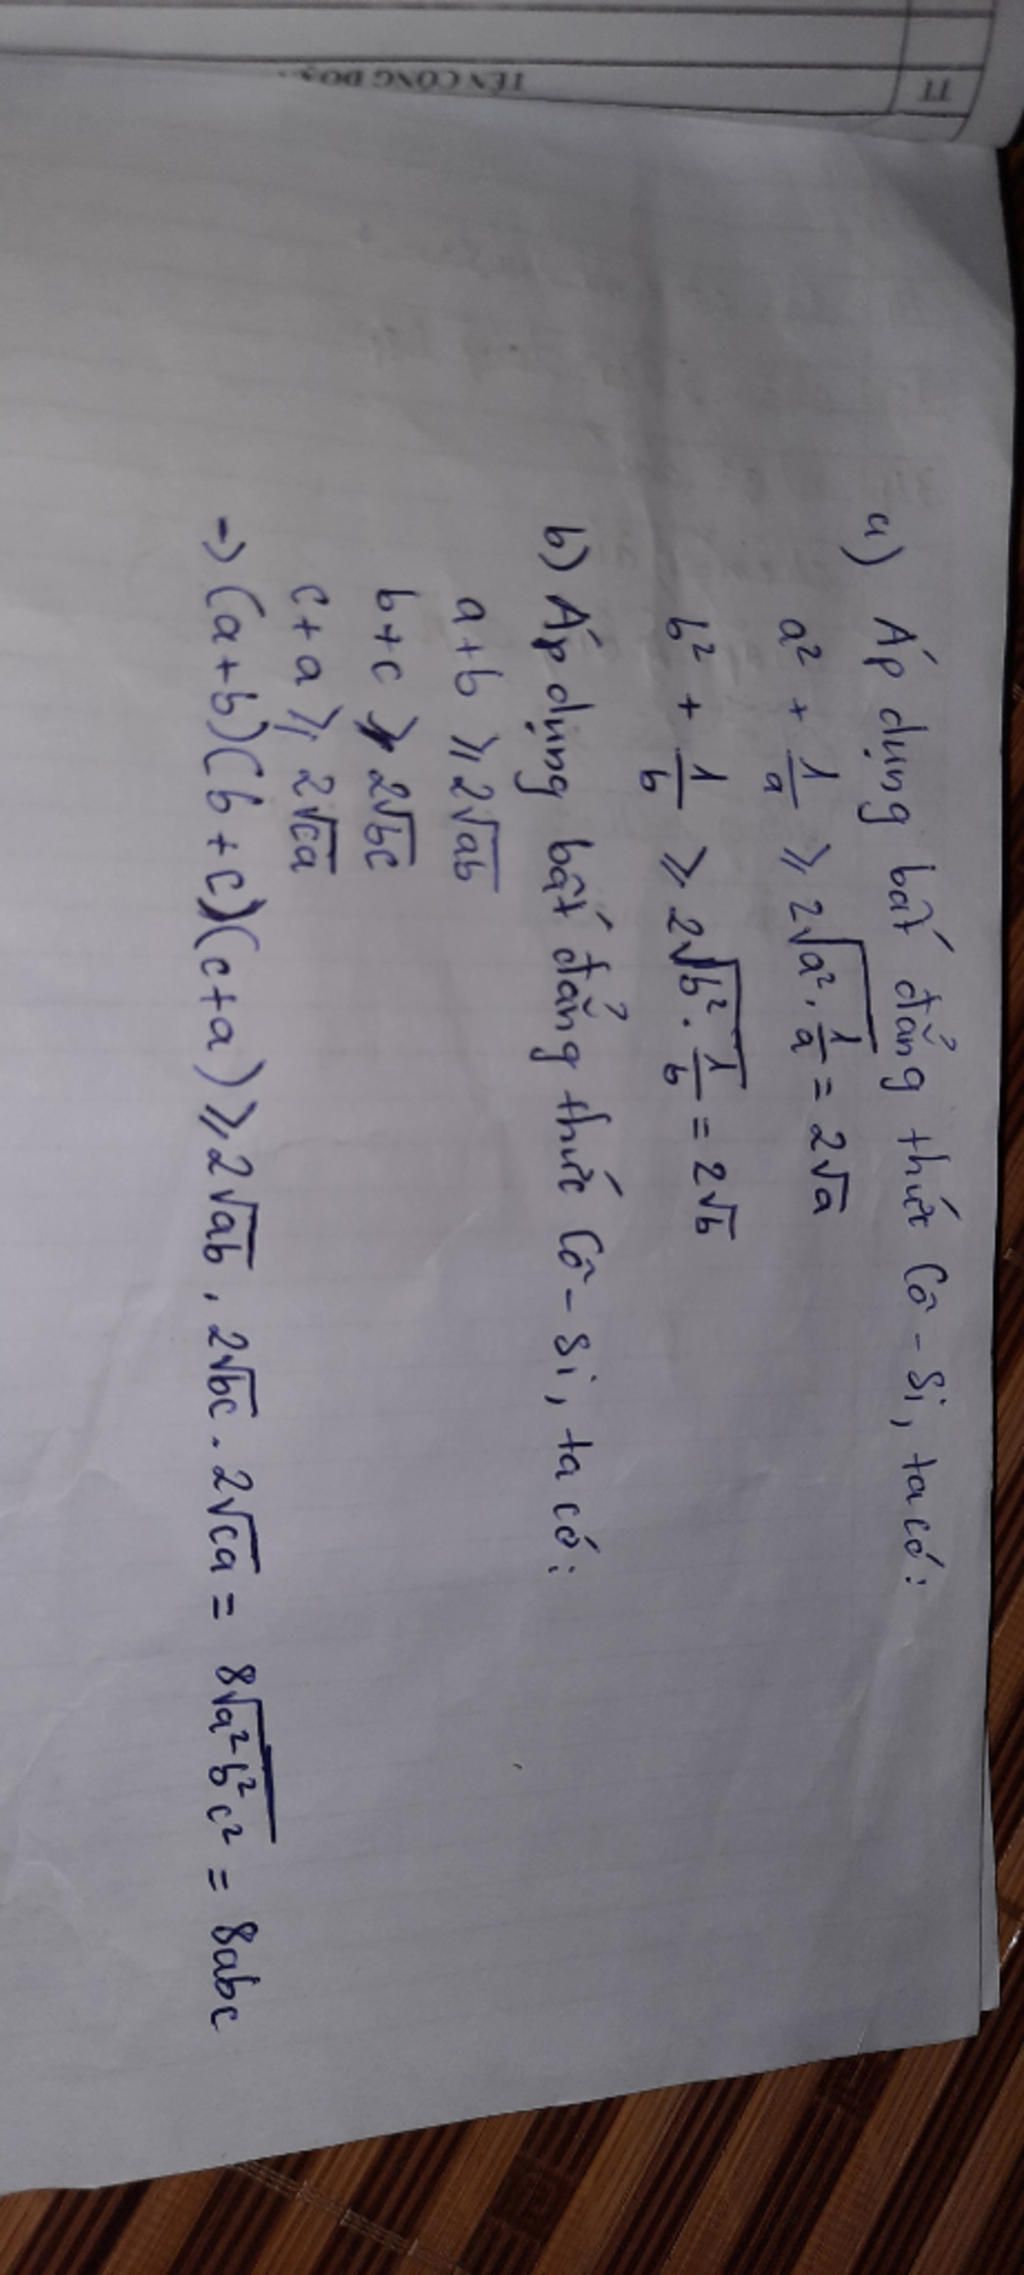 TT
TÊN CÔNG
a) Áp dụng bất đẳng thức Cô-si, ta có:
a² + 1/a ⩾ 2√(a².1/a) = 2√a
b² + 1/b ⩾ 2√(b².1/b) = 2√b
b) Áp dụng bất đẳng thức Cô-si, ta có:
a+b ⩾ 2√ab
b+c ⩾ 2√bc
c+a ⩾ 2√ca
→ (a+b)(b+c)(c+a) ⩾ 2√ab . 2√bc . 2√ca = 8√a²b²c² = 8abc